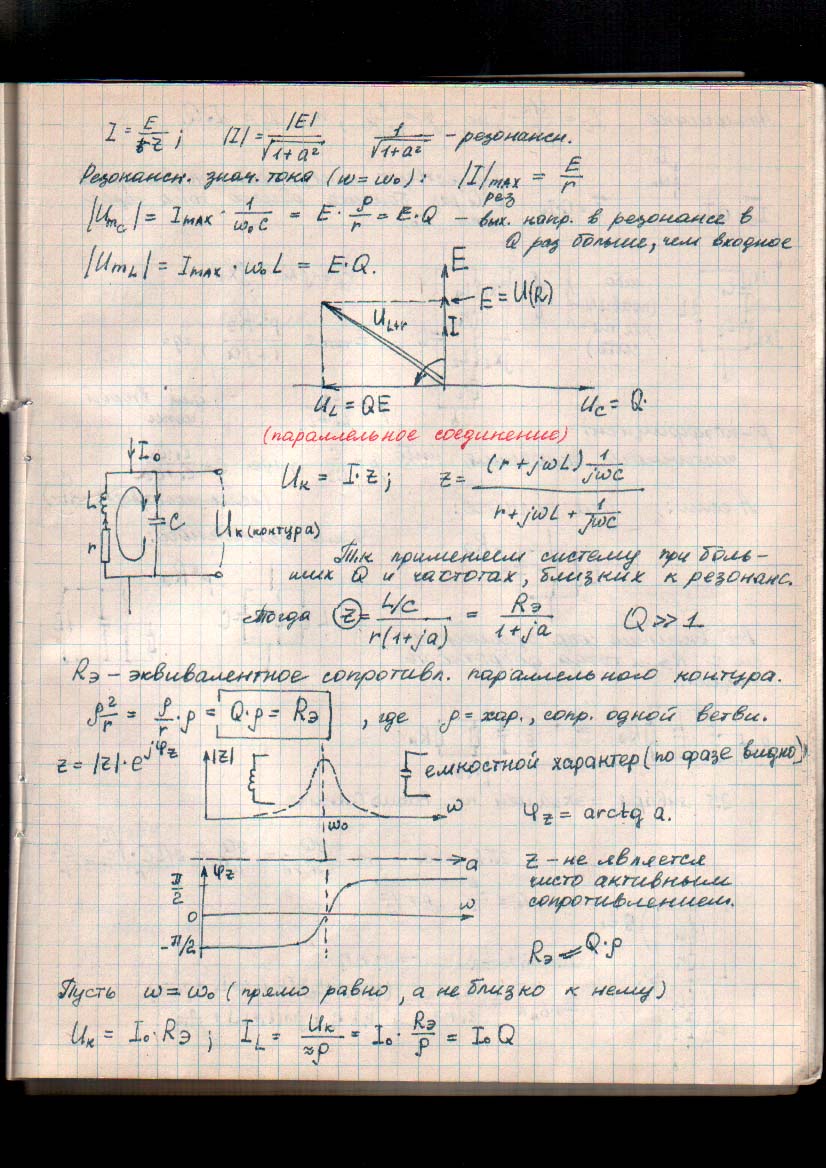 I = E/z ; |I| = |E|/√(1+a²) 1/√(1+a²) – резонансн.
Резонансн. знач. тока (ω=ω₀): |I|max рез = E/r
|Umc| = Imax · 1/ω₀C = E · ρ/r = E·Q – вых. напр. в резонансе в
Q раз больше, чем входное
|UmL| = Imax · ω₀L = E·Q.
E
E = U(R)
U L+r
I
U_L = QE
U_C = Q·
(параллельное соединение)
I₀
L
C
r
Uк (контура)
Uк = I·z ; z = (r+jωL) 1/jωC / r+jωL + 1/jωC
Т.к. применяем систему при боль-
ших Q и частотах, близких к резонанс.
Тогда z = L/C / r(1+ja) = Rэ / 1+ja Q >> 1
Rэ – эквивалентное сопротивл. параллельного контура.
ρ²/r = ρ/r · ρ = Q·ρ = Rэ , где ρ = хар. сопр. одной ветви.
z = |z|·e^jφz
|z|
ω₀
ω
емкостной характер (по фазе видно)
φz = arctg a.
a
φz
π/2
0
-π/2
ω
z – не является
чисто активным
сопротивлением.
Rэ = Q·ρ
Пусть ω=ω₀ (прямо равно, а не близко к нему)
Uк = I₀·Rэ ; I_L = Uк/≈ρ = I₀ · Rэ/ρ = I₀ Q